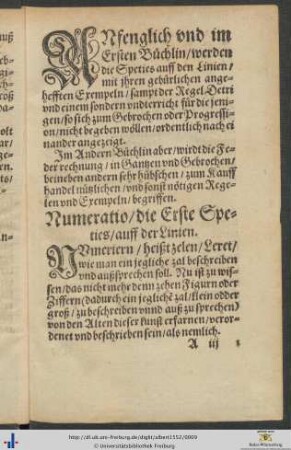 ANfenglich vnd im
Ersten Büchlin/werden
die Species auff den Linien/
mit jhren gebürlichen ange-
hefften Exempeln/sampt der Regel Detri
vnd einem sondern vndterricht für die jeni-
gen/so sich zum Gebrochen oder Progressi-
on/nicht begeben wöllen/ordentlich nach ei
nander angezeigt.
Im Andern Büchlin aber/wirdt die Fe-
der rechnung/in Gantzen vnd Gebrochen/
beineben andern sehr hübschen/zum Kauff
handel nützlichen/vnd sonst nötigen Rege-
len vnd Exempeln/begriffen.
Numeratio/die Erste Spe-
ties/auff der Linien.
NVmeriern/heißt zelen/Leret/
wie man ein jegliche zal beschreiben
vnd außsprechen soll. Nu ist zu wis-
sen/das nicht mehr denn zehen Figurn oder
Ziffern/dadurch ein jegliche zal/klein odder
groß/zu beschreiben vnnd auß zu sprechen/
von den Alten dieser kunst erfarnen/veror-
denet vnd beschrieben sein/als nemlich.
A iij
http://dl.ub.uni-freiburg.de/diglit/albert1552/0009
© Universitätsbibliothek Freiburg